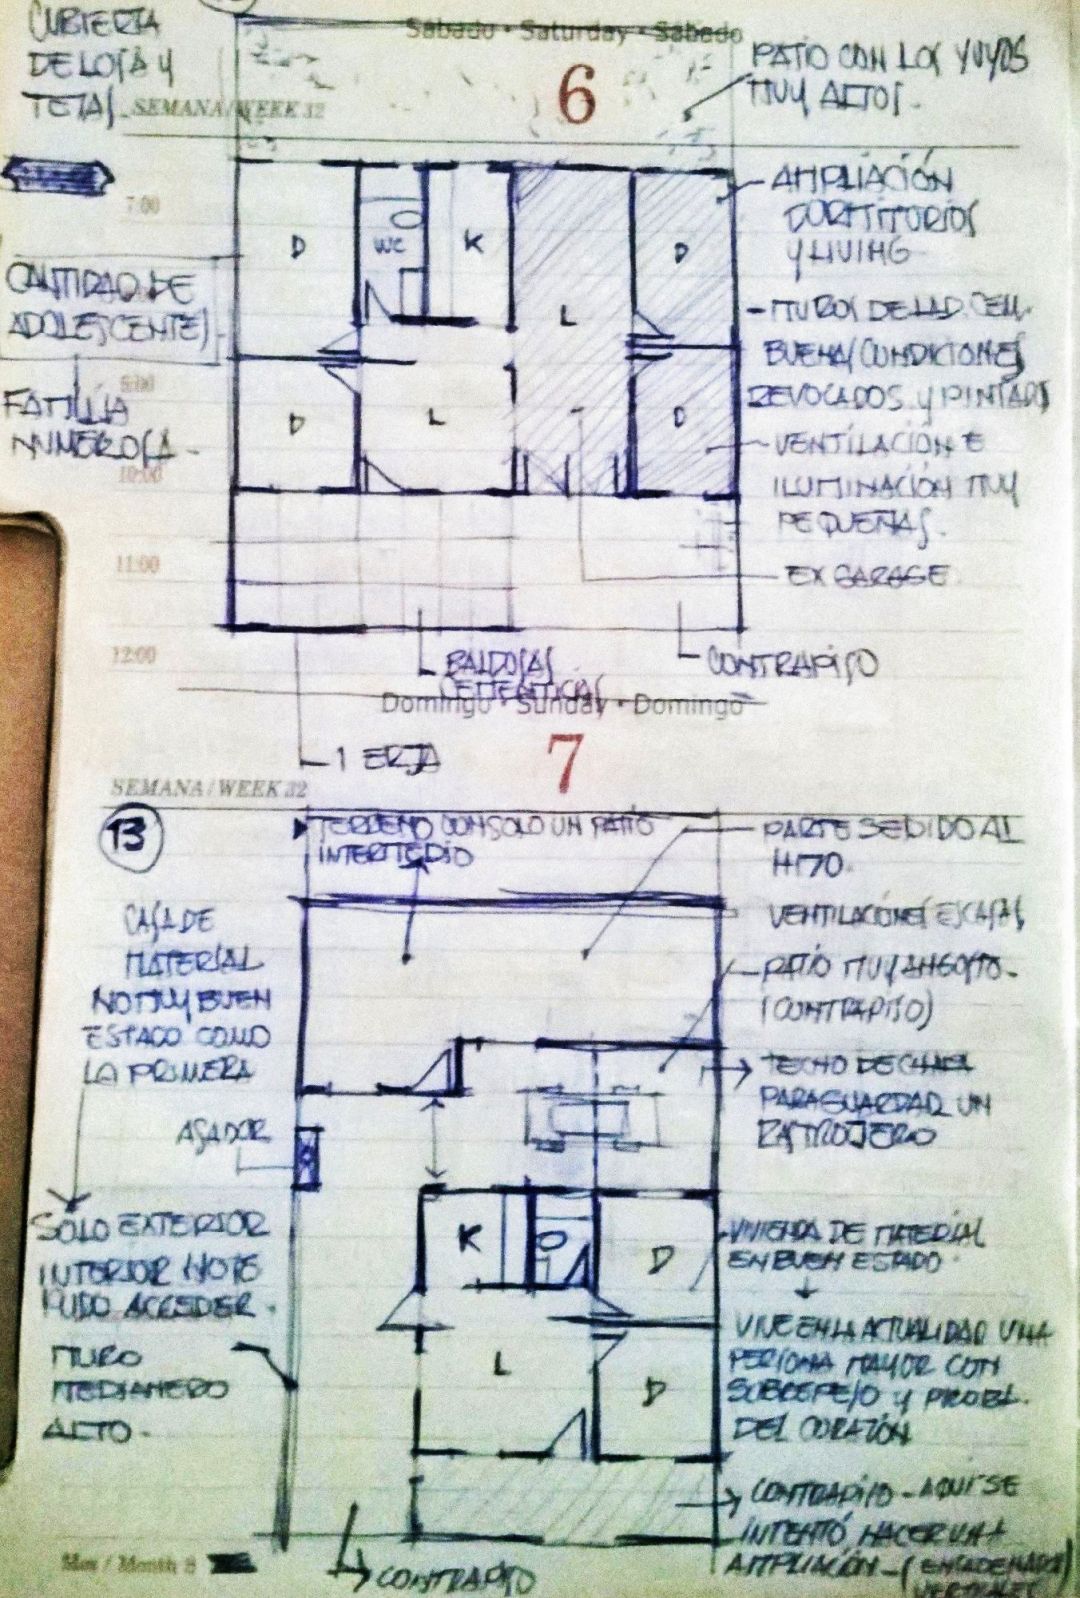 CUBIERTA
DE LOSA Y
TEJAS.
Sábado • Saturday • Sábado
6
SEMANA/WEEK 32
PATIO CON LOS YUYOS
MUY ALTOS.
7:00
AMPLIACIÓN
DORMITORIOS
Y LIVING
D
WC
K
L
D
CANTIDAD DE
ADOLESCENTES
- MUROS DE LAD. CEM.
BUENAS CONDICIONES
REVOCADOS Y PINTADOS
9:00
FAMILIA
NUMEROSA -
D
L
D
VENTILACION E
ILUMINACIÓN MUY
PEQUEÑAS.
10:00
11:00
EX GARAGE
12:00
BALDOSAS
CONTRAPISO
Domingo • Sunday • Domingo
7
SEMANA/WEEK 32
13
TERRENO CON SOLO UN PATIO
INTERMEDIO
PARTE SEDIDO AL
HIJO.
CASA DE
MATERIAL
NO MUY BUEN
ESTADO COMO
LA PRIMERA
VENTILACIONES ESCASAS
PATIO MUY ANGOSTO -
(CONTRAPISO)
TECHO DE CHAPA
PARA GUARDAR UN
RASTROJERO
ASADOR
SOLO EXTERIOR
INTERIOR NO SE
PUDO ACCEDER.
K
D
VIVIENDA DE MATERIAL
EN BUEN ESTADO.
MURO
MEDIANERO
ALTO -
L
D
VIVE EN LA ACTUALIDAD UNA
PERSONA MAYOR CON
SOBREPESO Y PROBL.
DEL CORAZÓN
CONTRAPISO - AQUÍ SE
INTENTÓ HACER UNA
AMPLIACIÓN - (ENCADENADOS
VERTICALES
Mes / Month 8
CONTRAPISO